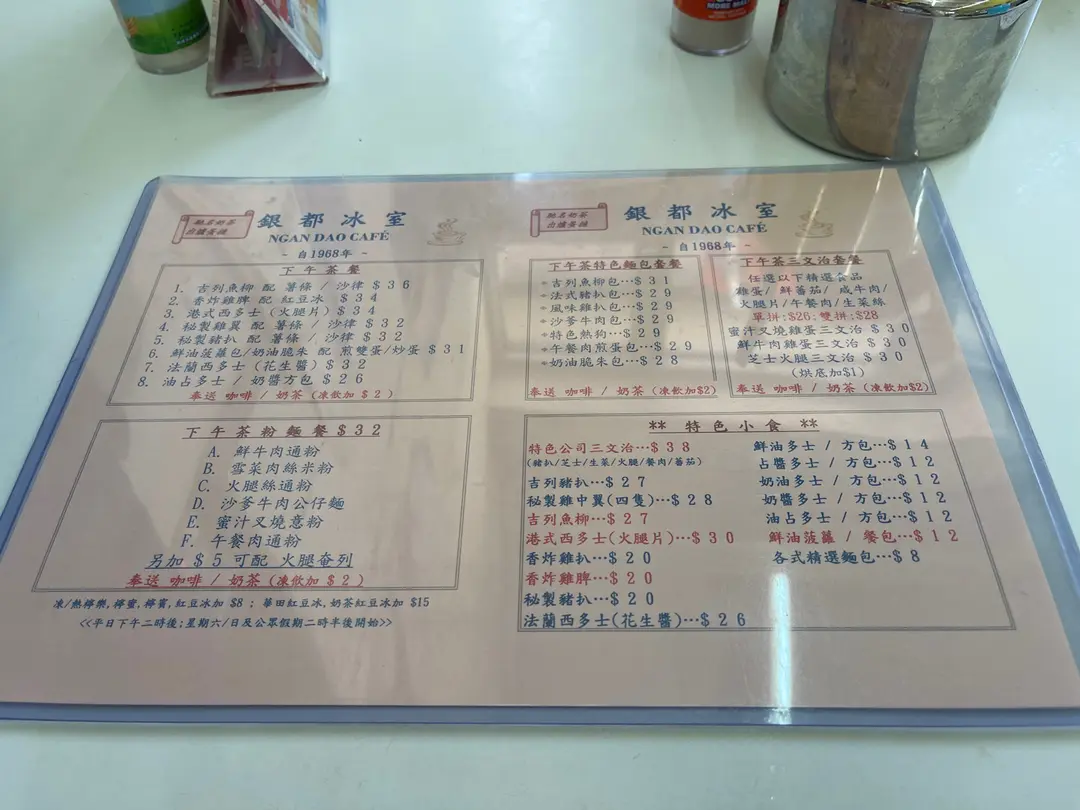 馳名奶茶
出爐蛋撻
銀都冰室
NGAN DAO CAFÉ
~ 自1968年 ~
下午茶餐
1. 吉列魚柳 配 薯條 / 沙律 $36
2. 香炸雞脾 配 紅豆冰 $34
3. 港式西多士 (火腿片) $34
4. 秘製雞翼 配 薯條 / 沙律 $32
5. 秘製豬扒 配 薯條 / 沙律 $32
6. 鮮油菠蘿包/奶油脆朱 配 煎雙蛋/炒蛋 $31
7. 法蘭西多士 (花生醬) $32
8. 油占多士 / 奶醬方包 $26
奉送 咖啡 / 奶茶 (凍飲加 $2)
下午茶粉麵餐 $32
A. 鮮牛肉通粉
B. 雪菜肉絲米粉
C. 火腿絲通粉
D. 沙爹牛肉公仔麵
E. 蜜汁叉燒意粉
F. 午餐肉通粉
另加 $5 可配 火腿奄列
奉送 咖啡 / 奶茶 (凍飲加 $2)
凍/熱檸樂,檸蜜,檸賓,紅豆冰加 $8 ; 華田紅豆冰,奶茶紅豆冰加 $15
<<平日下午二時後;星期六/日及公眾假期二時半後開始>>
馳名奶茶
出爐蛋撻
銀都冰室
NGAN DAO CAFÉ
~ 自1968年 ~
下午茶特色麵包套餐
吉列魚柳包…$31
法式豬扒包…$29
風味雞扒包…$29
沙爹牛肉包…$29
特色熱狗…$29
午餐肉煎蛋包…$29
奶油脆朱包…$28
奉送 咖啡 / 奶茶 (凍飲加$2)
下午茶三文治套餐
任選以下精選食品
雞蛋/ 鮮蕃茄/ 咸牛肉/
火腿片/午餐肉/生菜絲
單拼:$26;雙拼:$28
蜜汁叉燒雞蛋三文治 $30
鮮牛肉雞蛋三文治 $30
芝士火腿三文治 $30
(烘底加$1)
奉送 咖啡 / 奶茶 (凍飲加$2)
** 特色小食 **
特色公司三文治…$38
(豬扒/芝士/生菜/火腿/餐肉/蕃茄)
吉列豬扒…$27
秘製雞中翼(四隻)…$28
吉列魚柳…$27
港式西多士(火腿片)…$30
香炸雞扒…$20
香炸雞脾…$20
秘製豬扒…$20
法蘭西多士(花生醬)…$26
鮮油多士 / 方包…$14
占醬多士 / 方包…$12
奶油多士 / 方包…$12
奶醬多士 / 方包…$12
油占多士 / 方包…$12
鮮油菠蘿 / 餐包…$12
各式精選麵包…$8